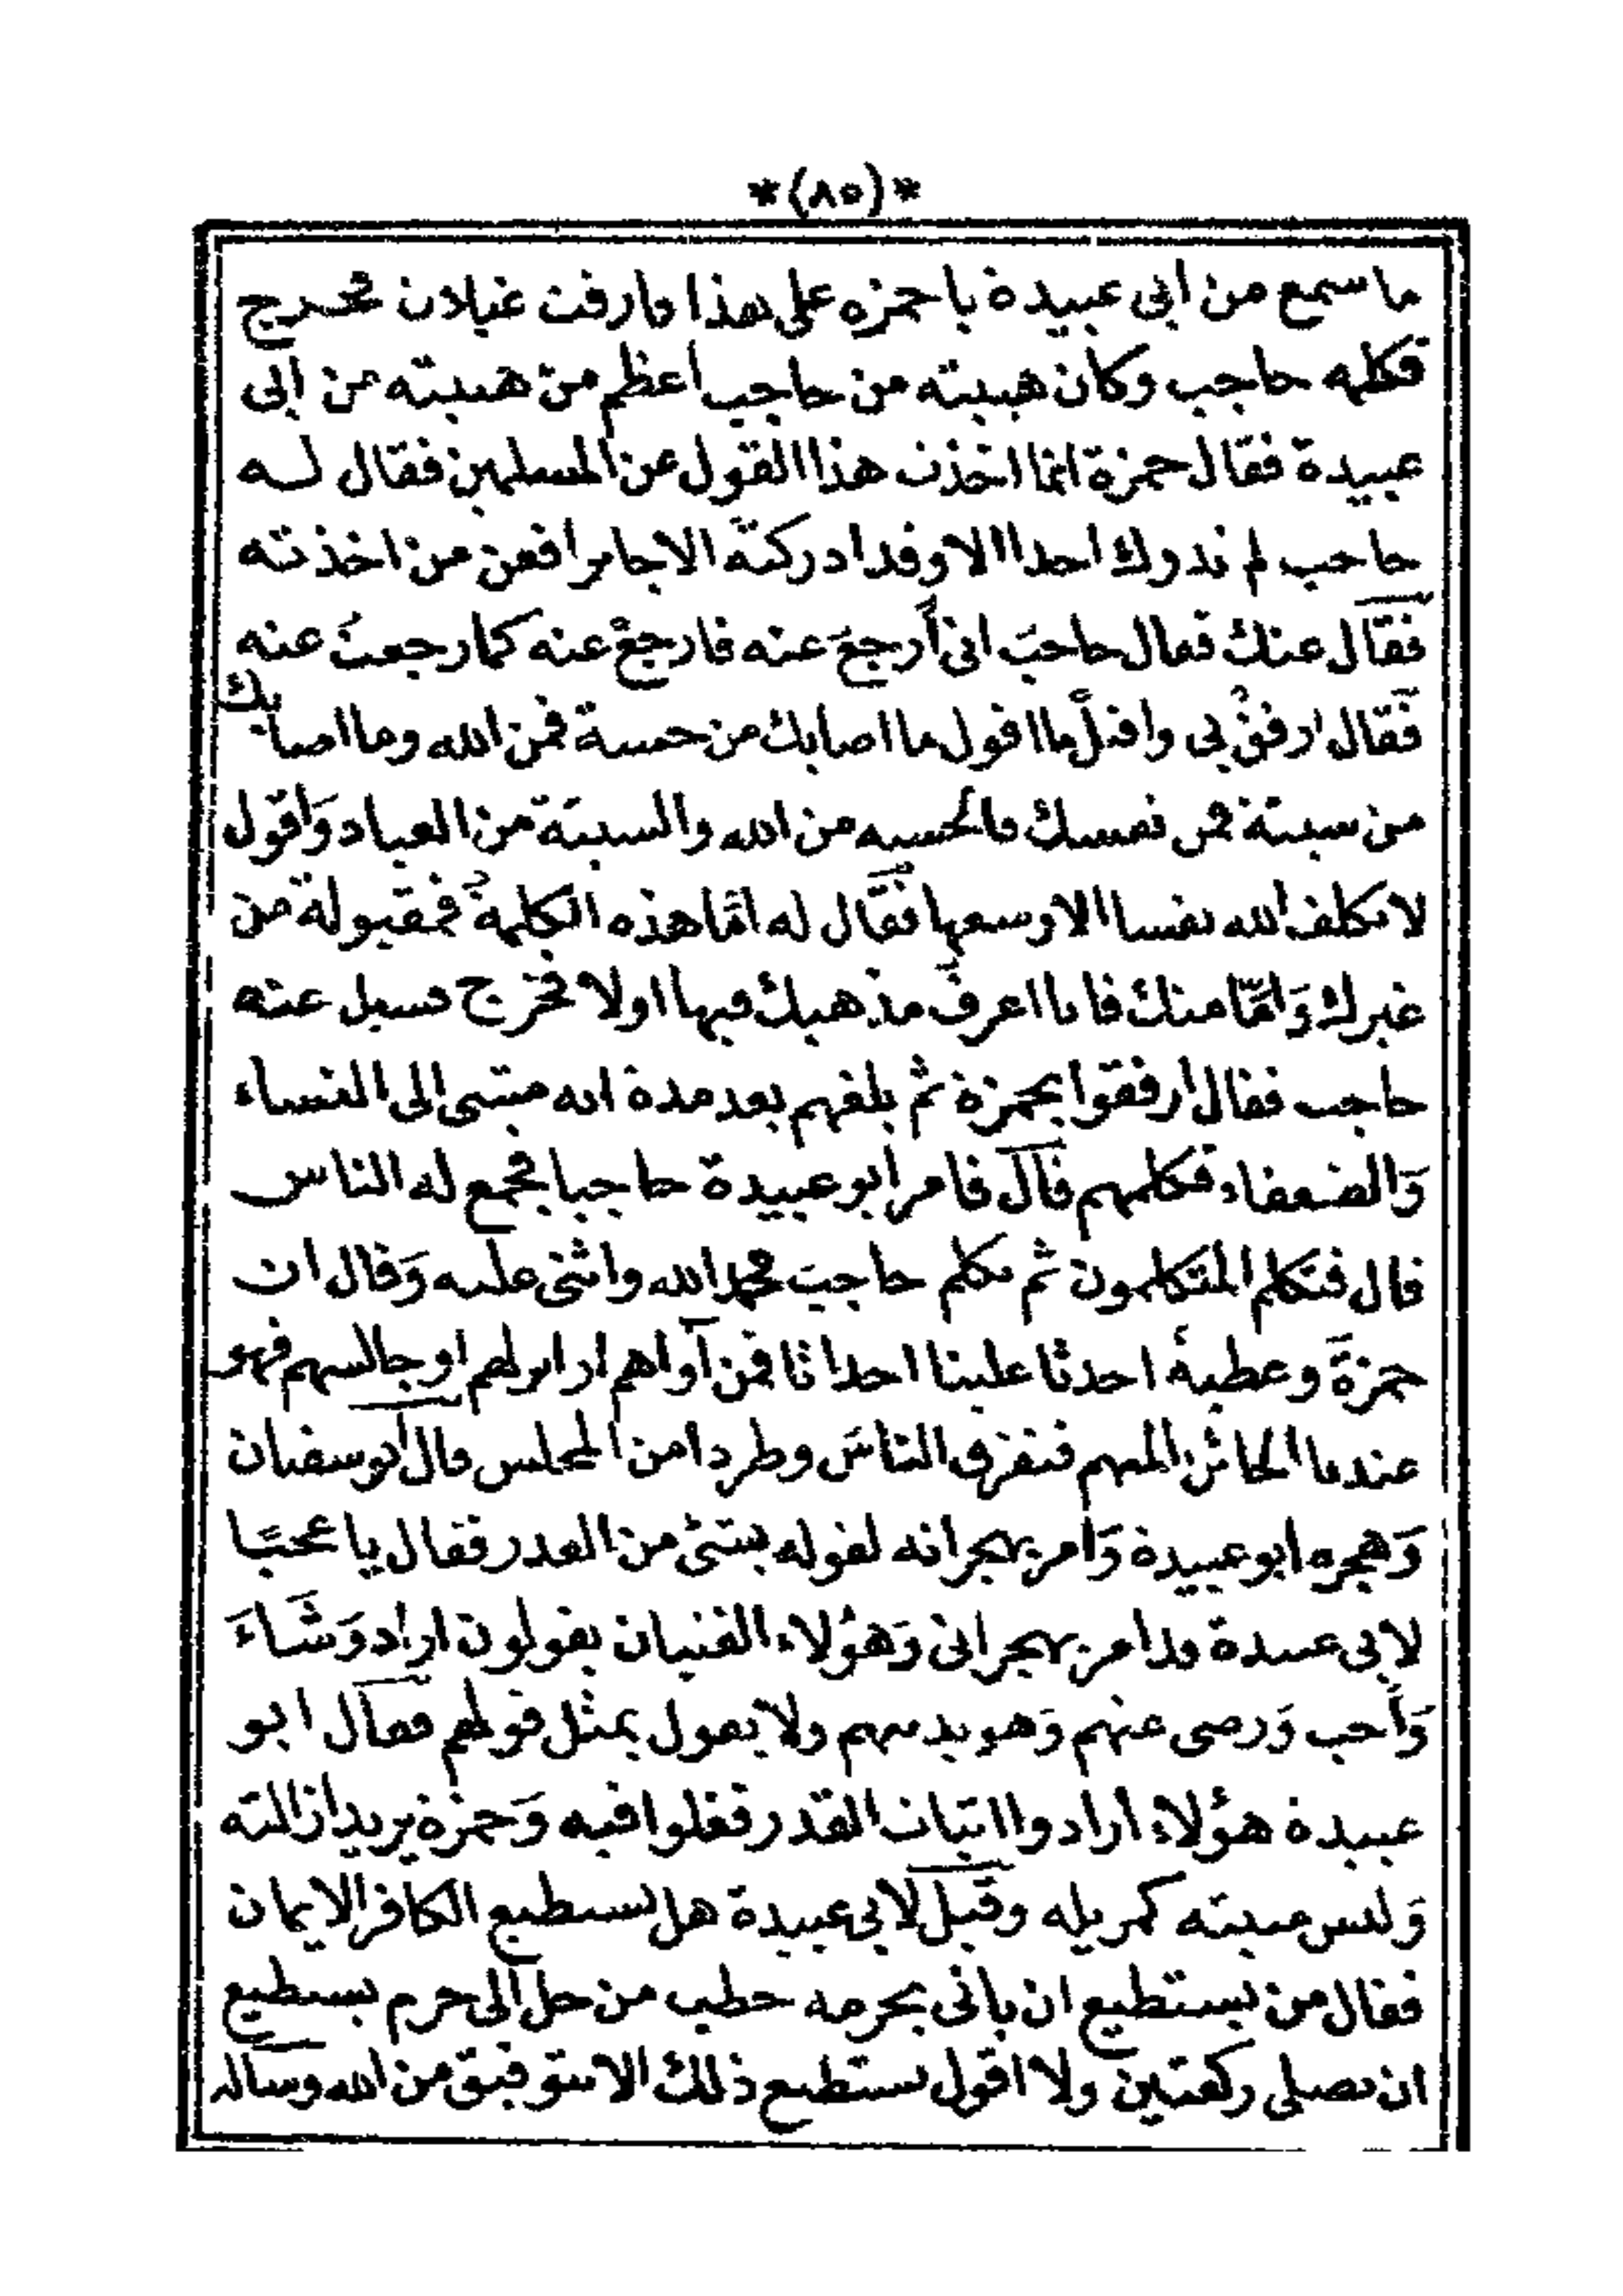 *(٨٥)*
ما سمع من ابى عبيدة يا حمزه على هذا فارقت غيلان فخرج
فكلمه حاجب وكان هيبته من حاجب اعظم من هيبته من ابى
عبيدة فقال حمزة انما اخذت هذا القول عن المسلمين فقال له
حاجب لم تدرك احدا الا وقد ادركته الا جابرا فعن من اخذته
فقال عنك فقال حاجب انى أرجع عنه فارجع عنه كما رجعت عنه
فقال ارفق بى واقبل ما اقول ما اصابك من حسنة فمن الله وما اصابك
من سيئة فمن نفسك فالحسنه من الله والسيئة من العباد وَاقول
لا يكلف الله نفسا الا وسعها فقال له امّا هذه الكلمة فمقبولة من
غيرك وَامّا منك فانا اعرف مذهبك فيها اولا فخرج فسيل عنه
حاجب فقال ارفقوا بحمزة ثم بلغهم بعد مدة انه مشى الى النساء
وَالضعفاء فكلمهم قال فامر ابو عبيدة حاجبا فجمع له الناس
قال فتكلم المتكلمون ثم تكلم حاجب فحمد الله واثنى عليه وَقال ان
حمزةَ وعطية احدثا علينا احداثا فمن آواهم او انزلهم او جالسهم فهو
عندنا الخائن المتهم فتفرق الناس وطردا من المجلس قال ابو سفيان
وَهجره ابو عبيدة وَامر بهجرانه لقوله بشئ من القدر فقال يا عجبًا
لابى عبيدة قد امر بهجرانى وَهؤلاء الفتيان يقولون اراد وَشَاءَ
وَأحب وَرضى عنهم وَهو يدنيهم ولا يقول بمثل قولهم فقال ابو
عبيدة هؤلاء أرادوا اثبات القدر فغلوا فيه وَحمزة يريد ازالته
وَليس مثبته كمزيله وقيل لابى عبيدة هل يستطيع الكافر الايمان
فقال من يستطيع ان ياتى بحزمه حطب من حل الى حرم يستطيع
ان يصلى ركعتين ولا اقول يستطيع ذلك الا بتوفيق من الله وساله